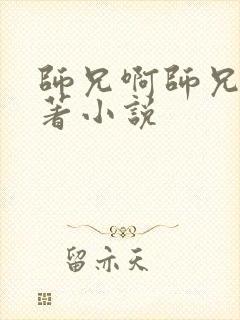 師兄啊師兄
著小說
留亦天